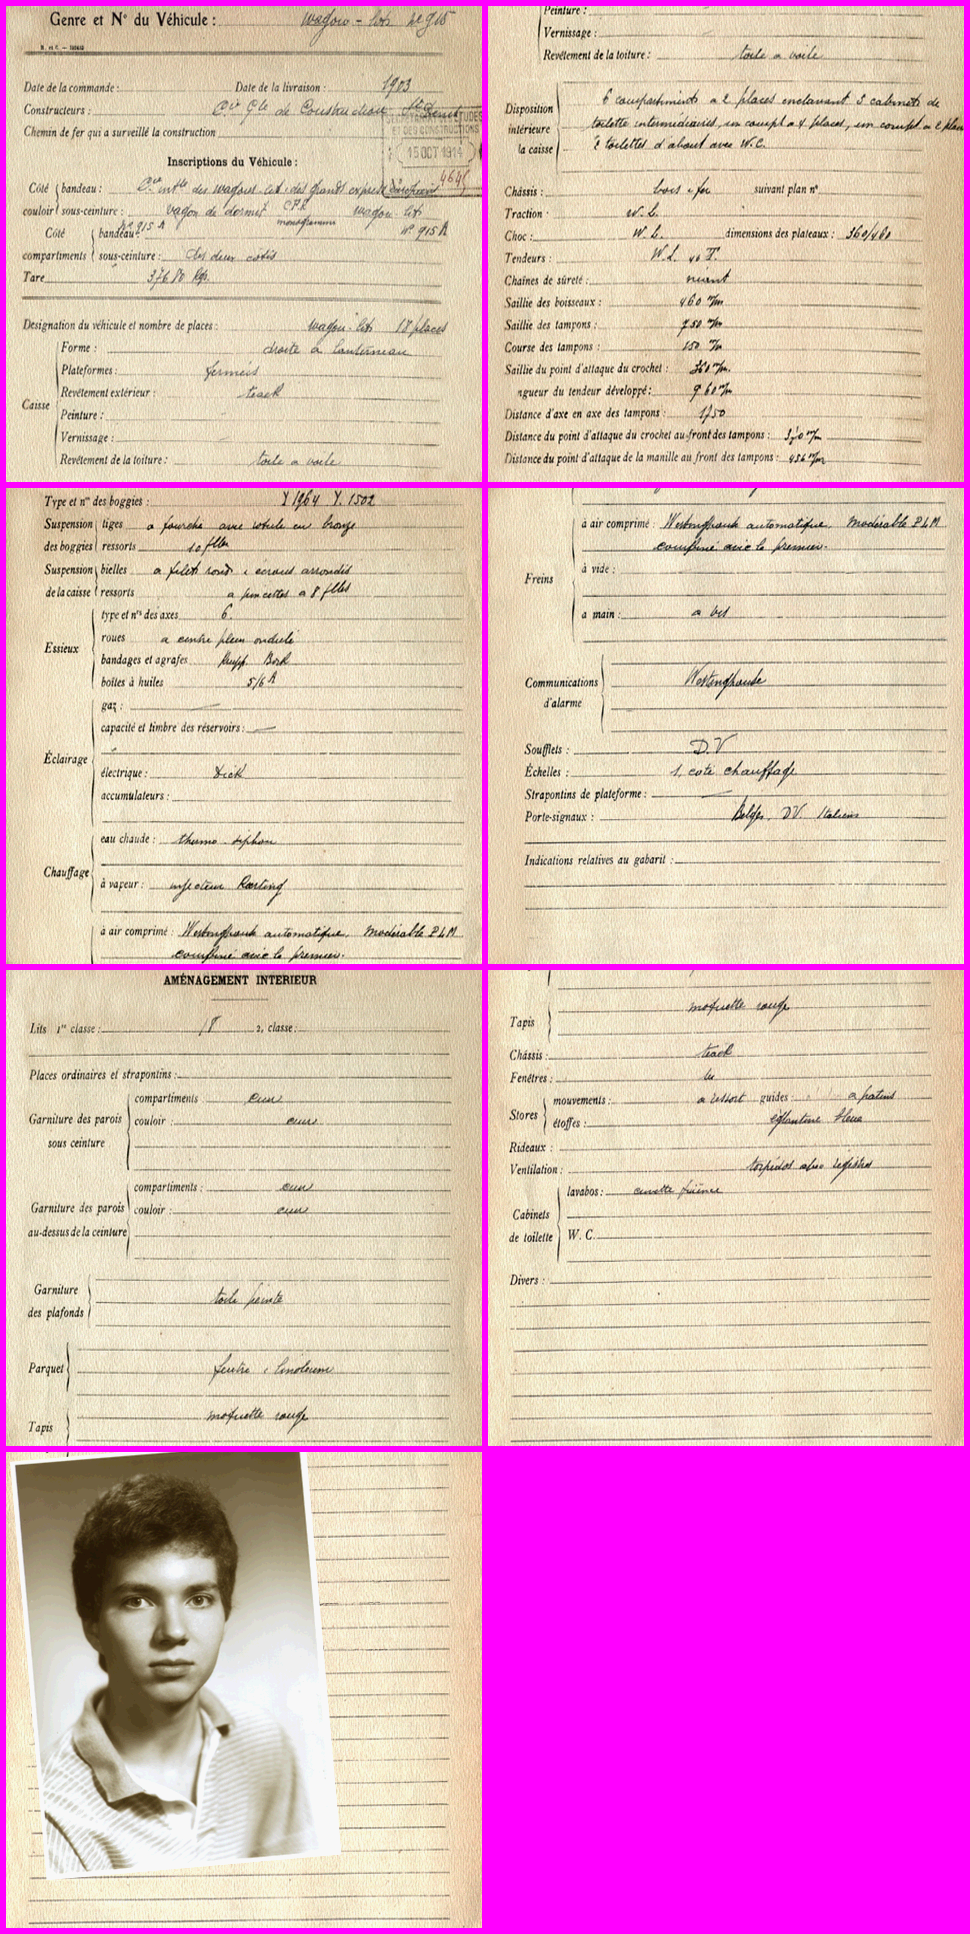 Genre et N° du Véhicule : wagon - lits Le 915
Date de la commande : Date de la livraison : 1903
Constructeurs : Cie Gle de Construction St Denis
Chemin de fer qui a surveillé la construction
ET DES CONSTRUCTIONS
15 OCT 1914
4645
Inscriptions du Véhicule :
Côté couloir
bandeau : Cie intle des wagons-lits des grands express Européens
sous-ceinture : wagon de dormit C.F.R. monogramme wagon-lits
N° 915 A N° 915 A
Côté compartiments
bandeau :
sous-ceinture : des deux côtés
Tare 37680 Kgs.
Designation du véhicule et nombre de places : wagon-lits 18 places
Caisse
Forme : droite à lanterneau
Plateformes : fermées
Revêtement extérieur : teack
Peinture :
Vernissage :
Revêtement de la toiture : toile a voile
Peinture :
Vernissage :
Revêtement de la toiture : toile a voile
Disposition intérieure la caisse
6 compartiments a 2 places enclavant 3 cabinets de
toilette intermédiaires, un compt a 4 places, un compt a 2 places
2 toilettes d'about avec W.C.
Châssis : bois & fer suivant plan n°
Traction : W. L.
Choc : W. L. dimensions des plateaux : 360/460
Tendeurs : W.L. 40 T.
Chaînes de sûreté : néant
Saillie des boisseaux : 460 m/m
Saillie des tampons : 750 m/m
Course des tampons : 150 m/m
Saillie du point d'attaque du crochet : 360 m/m
ngueur du tendeur développé : 960 m/m
Distance d'axe en axe des tampons : 1750
Distance du point d'attaque du crochet au front des tampons : 370 m/m
Distance du point d'attaque de la manille au front des tampons : 456 m/m
Type et nos des boggies : Y 1964 Y. 1502
Suspension des boggies
tiges a fourche avec rotule en bronze
ressorts 10 flles
Suspension de la caisse
bielles a filets ronds & ecrous arrondis
ressorts a pincettes a 8 flles
Essieux
type et nos des axes 6.
roues a centre plein ondulé
bandages et agrafes Krupp Bork
boîtes à huiles 5/6 A
Éclairage
gaz :
capacité et timbre des réservoirs :
électrique : Dick
accumulateurs :
Chauffage
eau chaude : thermo-siphon
à vapeur : injecteur Kœrting
à air comprimé : Westinghouse automatique. Modérable P L M
combiné avec le premier.
Freins
à air comprimé : Westinghouse automatique. Modérable P L M
combiné avec le premier.
à vide :
a main : a vis
Communications d'alarme
Westinghouse
Soufflets : D.V
Échelles : 1, coté chauffage
Strapontins de plateforme :
Porte-signaux : Belges, DV. Italiens
Indications relatives au gabarit :
AMÉNAGEMENT INTERIEUR
Lits 1re classe : 18 2, classe :
Places ordinaires et strapontins :
Garniture des parois sous ceinture
compartiments cuir
couloir : cuir
Garniture des parois au-dessus de la ceinture
compartiments : cuir
couloir : cuir
Garniture des plafonds
toile peinte
Parquet
feutre & linoleum
Tapis
moquette rouge
Tapis
moquette rouge
Châssis : teack
Fenêtres :
Stores
mouvements : a ressort guides : a patins
étoffes : églantine bleue
Rideaux :
Ventilation : torpédos avec registres
Cabinets de toilette
lavabos : cuvette faïence
W. C.
Divers :